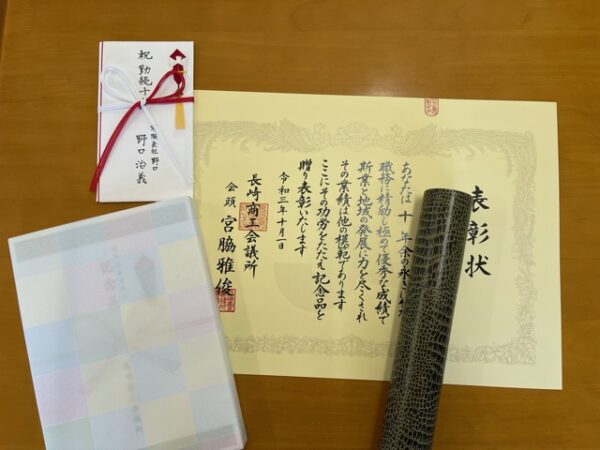 表彰状
あなたは十年余の永きに
職務に精励し極めて優秀な成績で
斯業と地域の発展に力を尽くされ
その業績は他の模範であります
ここにその功労をたたえ記念品を
贈り表彰いたします
令和三年十月一日
長崎商工会議所
会頭 宮脇雅俊
祝 勤続十
有限会社 野口
野口 治義
記念品